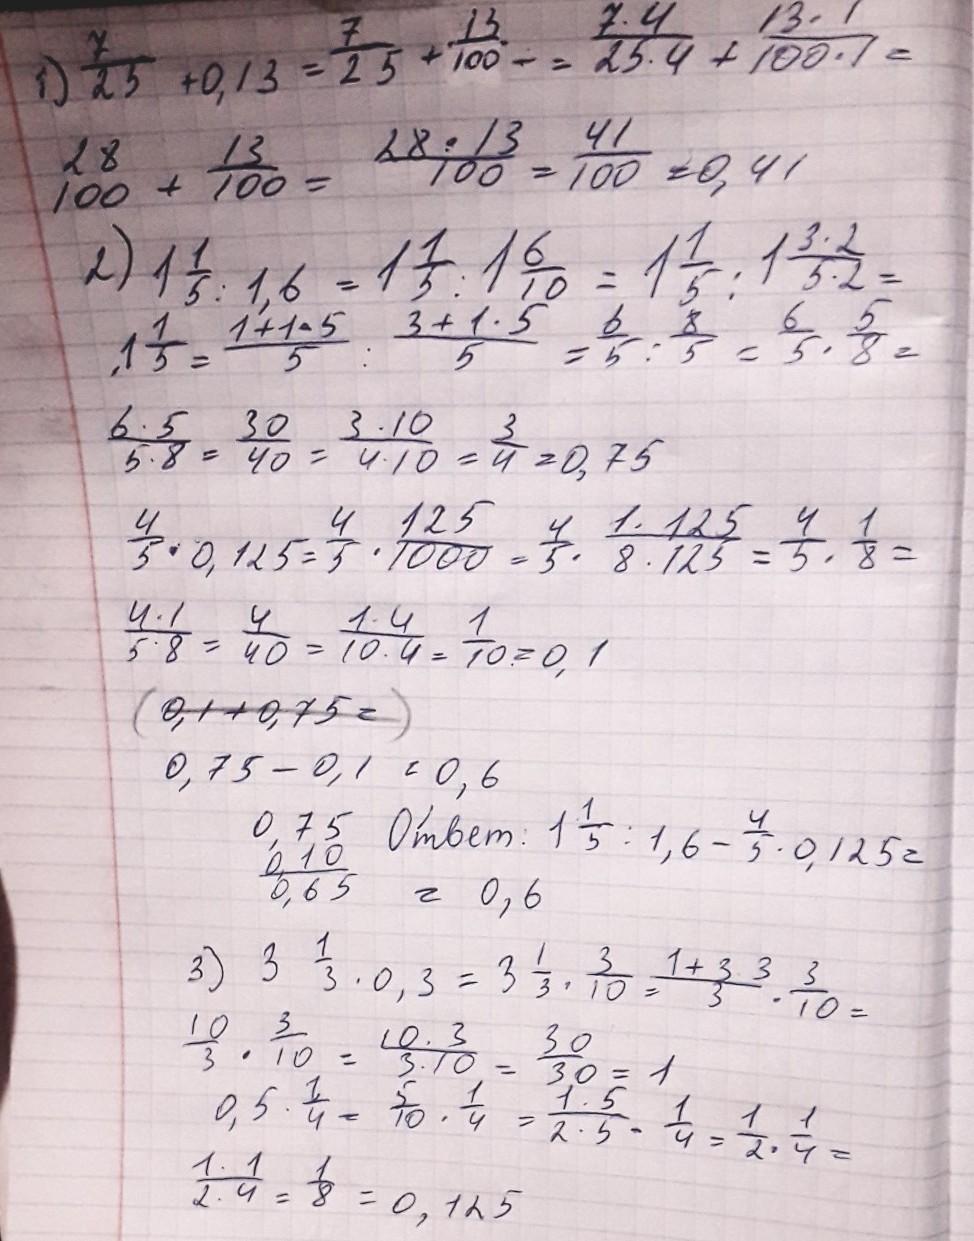 1) 7/25 + 0,13 = 7/25 + 13/100 = = 7·4/25·4 + 13·1/100·1 =
28/100 + 13/100 = 28·13/100 = 41/100 = 0,41
2) 1 1/5 : 1,6 = 1 1/5 : 1 6/10 = 1 1/5 : 1 3·2/5·2 =
1 1/5 = 1+1·5/5 : 3+1·5/5 = 6/5 : 8/5 = 6/5 · 5/8 =
6·5/5·8 = 30/40 = 3·10/4·10 = 3/4 = 0,75
4/5 · 0,125 = 4/5 · 125/1000 = 4/5 · 1·125/8·125 = 4/5 · 1/8 =
4·1/5·8 = 4/40 = 1·4/10·4 = 1/10 = 0,1
(0,1 + 0,75 = )
0,75 - 0,1 = 0,6
0,75 Ответ: 1 1/5 : 1,6 - 4/5 · 0,125 =
0,10
0,65 = 0,6
3) 3 1/3 · 0,3 = 3 1/3 · 3/10 = 1+3·3/3 · 3/10 =
10/3 · 3/10 = 10·3/3·10 = 30/30 = 1
0,5 · 1/4 = 5/10 · 1/4 = 1·5/2·5 · 1/4 = 1/2 · 1/4 =
1·1/2·4 = 1/8 = 0,125